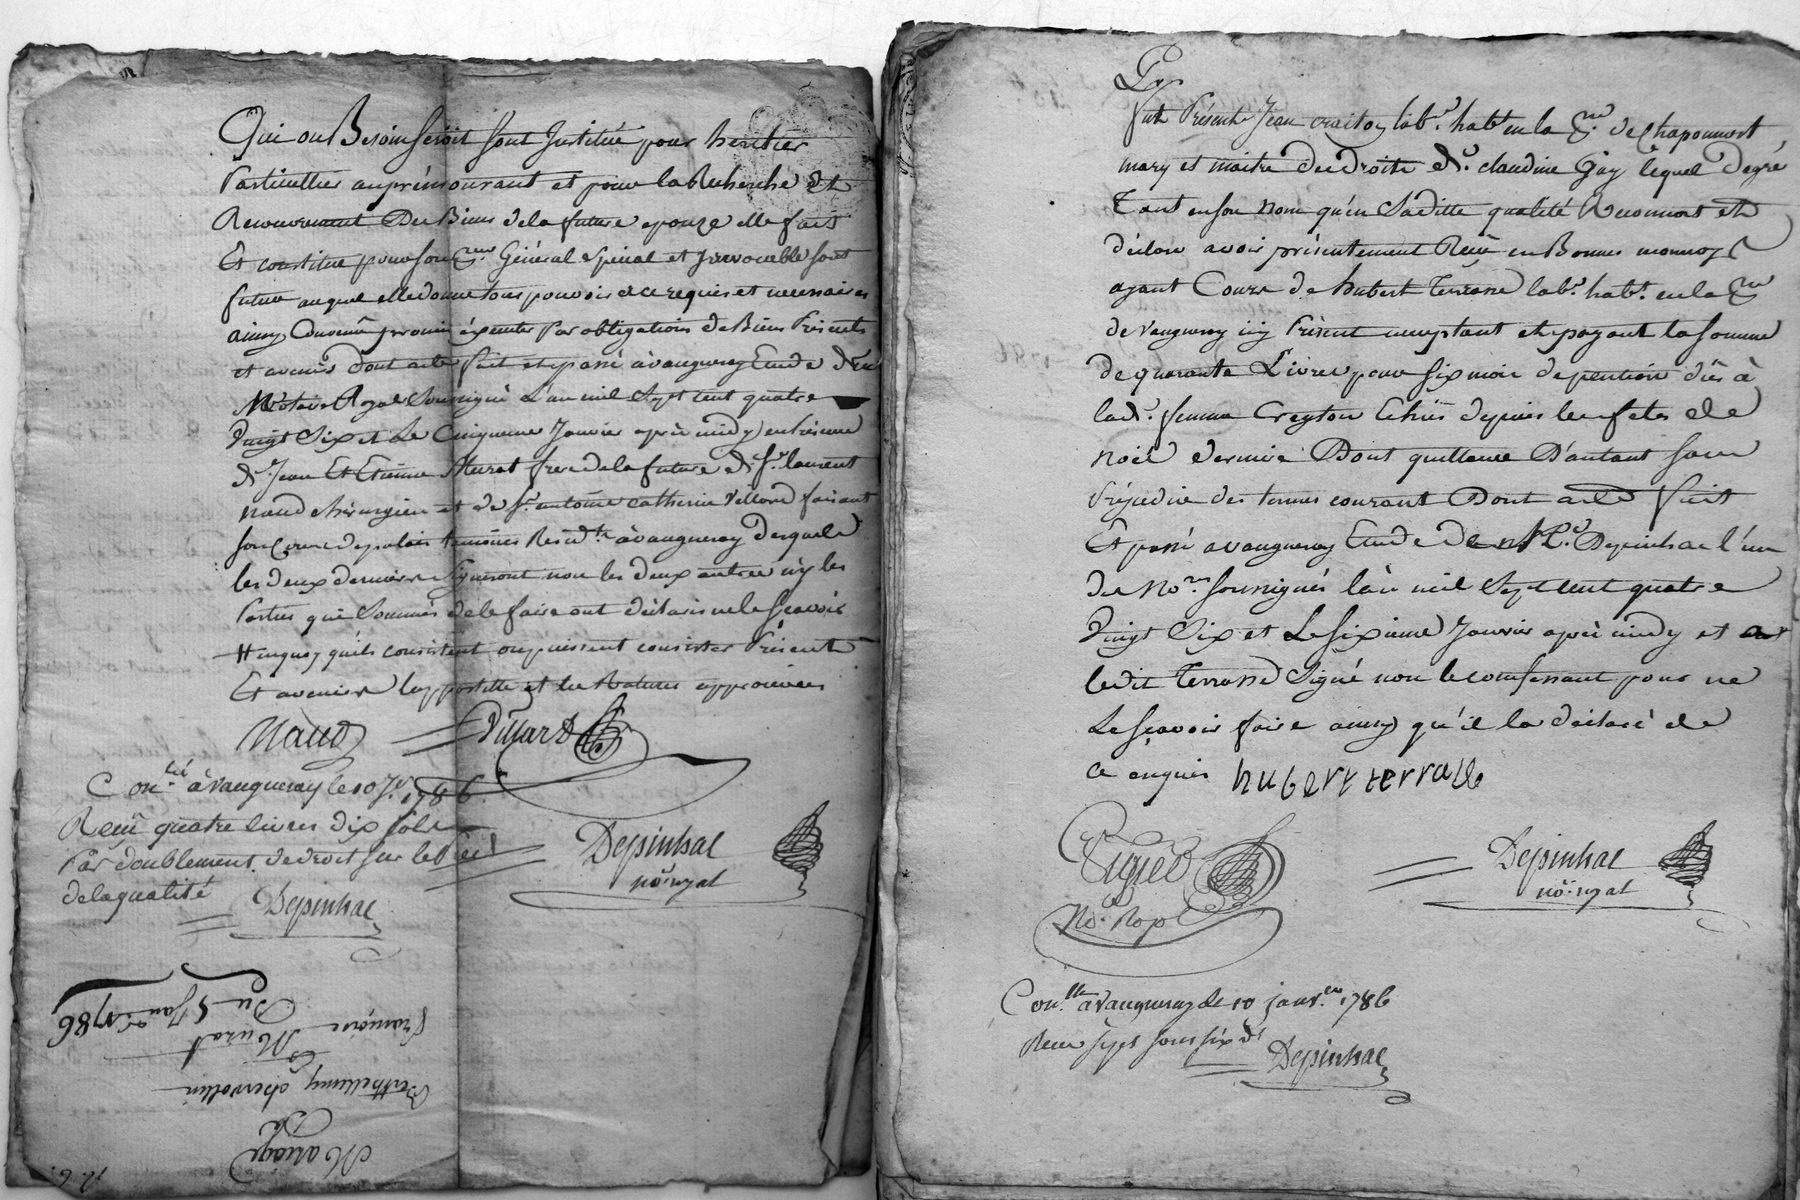 Qui ou Besoin seroit sont Jnstitué pour heritier
Particullier auprémourant et pour la Recherche Et
Recouvrement Des Biens dela future epouze elle fait
Et constitue pour son Général Spécial et Jrrevocable sont
futur auquel elle donne tous pouvois de ce requis et necessaires
ainsy Convenû promis éxecuter Par obligations de Biens Présents
et avenirs dont acte fait et passé à vaugneray Etude
Notaire Royal Soussigné L'an mil Sept Cent quatre
Vingt Six et Le Cinquieme Janvier après midy en présence
de Jean Et Etienne Murat frere de la future de Sr. laurent
naud chirurgien et de Sr. antoine catherin Villard faisant
son cour de palais temoins Resid.ts à vaugneray desquels
les deux derniers Signeront non les deux autres n'y les
Parties qui Sommés de le faire ont déclaré ne le Scavoir
quoy qu'ils consistent ou puissent consister Présents
Et avenir l'appostille et les Ratures approuvées
Naud Villard
Con.lé à vaugneray le 10 Jr. 1786
Reçû quatre livres dix sols
Par doublement de droit sur le
de la qualité
Depinhac
Depinhac
no. royal
Mariage
De
Barthellemy chervollin
Et
Françoise Murat
Du 5 Janv. 1786
Par
fut Présent Jean lab.r hab.t en la de Chaponnost
mary et maitre des droits de claudine Gay lequel degré
Tant en son Nom qu'en Saditte qualité Reconnoit et
déclare avoir présentement Reçû en Bonnes monnoy
ayant Cours de hubert Terrasse lab.r hab.t en la
de vaugneray icy Présent acceptant et payant la somme
de quarante Livres pour six mois de pention dûs à
lad. femme Creyton Echûs depuis les fetes de
Noël derniere Dont quittance D'autant sans
Préjudice des termes courant Dont acte fait
Et passé a vaugneray Etude de Me. Depinhac l'un
de No.res soussignés l'an mil Sept Cent quatre
Vingt Six et Le sixieme Janvier après midy et
ledit Terrasse Signé non le confessant pour ne
Le sçavoir faire ainsy qu'il la déclaré de
ce enquis hubert terrasse
No. Royal
Depinhac
no. royal
Con.lle à vaugneray le 10 janv.er 1786
Receu sept sous six d.
Depinhac